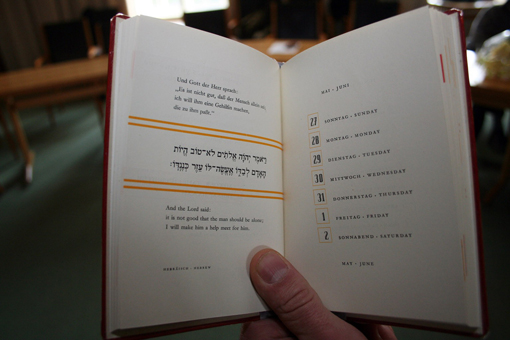 Und Gott der Herr sprach:
„Es ist nicht gut, daß der Mensch allein sei,
ich will ihm eine Gehilfin machen,
die zu ihm paßt.“
וַיֹּאמֶר יְהוָה אֱלֹהִים לֹא־טוֹב הֱיוֹת
הָאָדָם לְבַדּוֹ אֶעֱשֶׂה־לּוֹ עֵזֶר כְּנֶגְדּוֹ׃
And the Lord said:
it is not good that the man should be alone;
I will make him a help meet for him.
HEBRÄISCH · HEBREW
MAI · JUNI
27 SONNTAG · SUNDAY
28 MONTAG · MONDAY
29 DIENSTAG · TUESDAY
30 MITTWOCH · WEDNESDAY
31 DONNERSTAG · THURSDAY
1 FREITAG · FRIDAY
2 SONNABEND · SATURDAY
MAY · JUNE